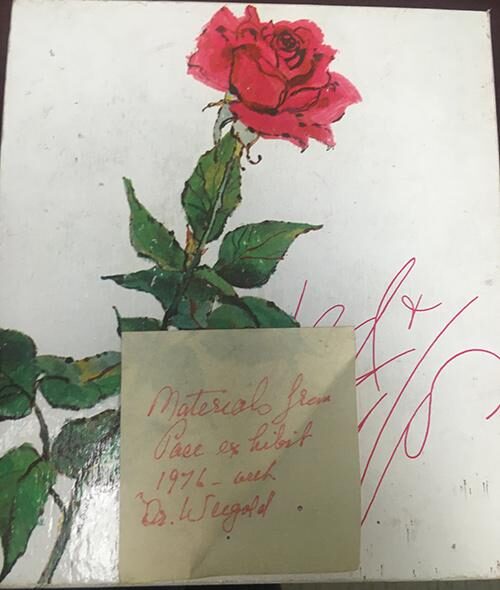 Materials from
Pace exhibit
1976 - with
Dr. Weigold